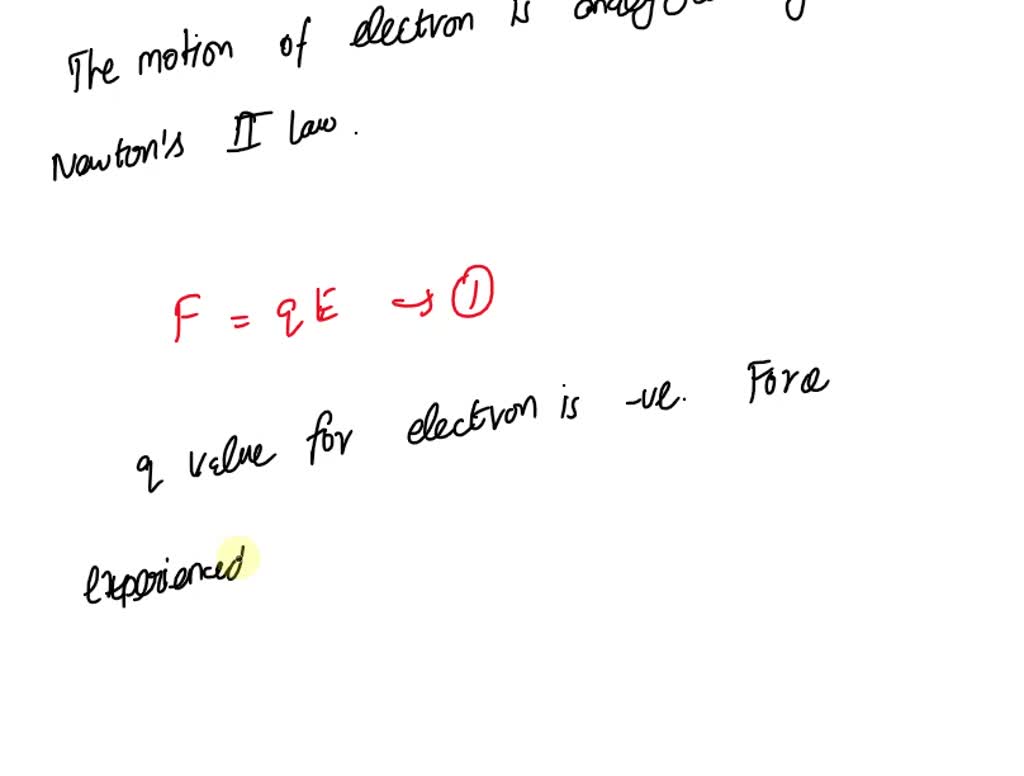 The motion of electron is
Newton's II law.
F = qE → ①
q value for electron is -ve. Force
experienced